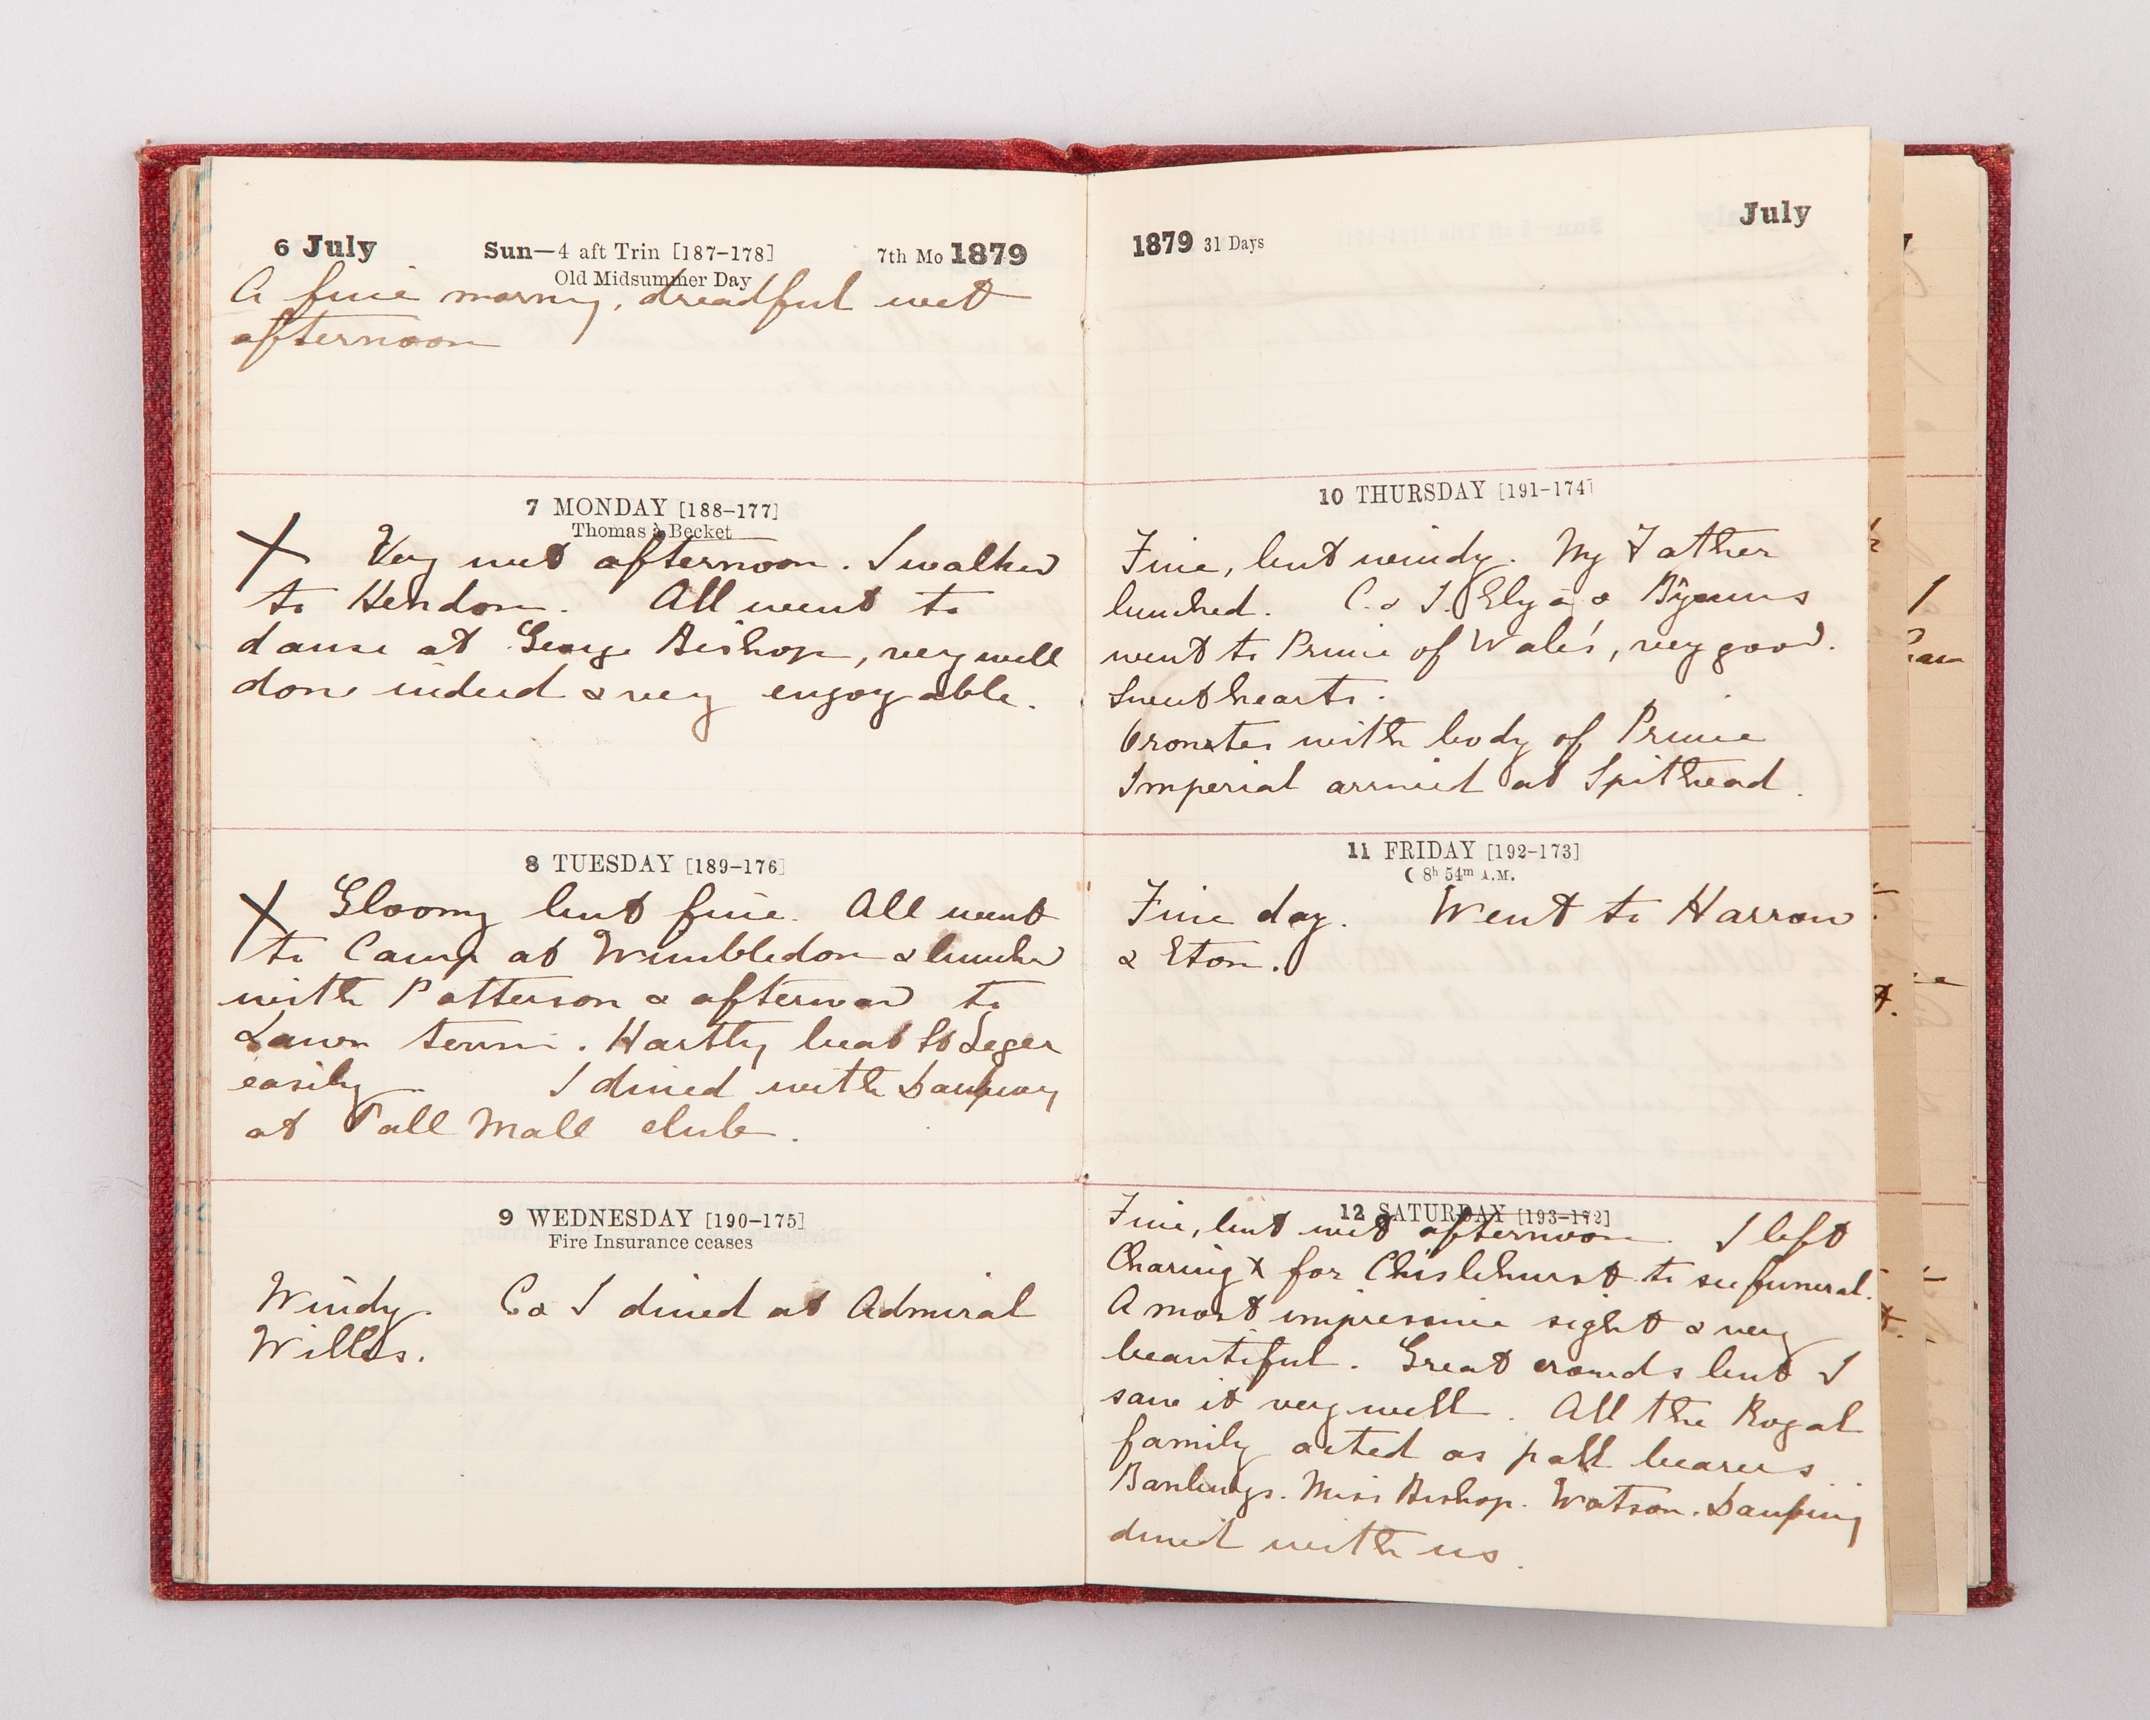 6 July Sun—4 aft Trin [187-178] 7th Mo 1879
Old Midsummer Day
A fine morng, dreadful wet
afternoon
7 MONDAY [188-177]
Thomas à Becket
X Very wet afternoon. I walked
to Hendon. All went to
dance at George Bishop, very well
done indeed & very enjoyable.
8 TUESDAY [189-176]
X Gloomy but fine. All went
to Camp at Wimbledon & lunched
with Patterson & afterward to
Lawn tennis. Hartly beat St Leger
easily. I dined with
at Pall Mall club.
9 WEDNESDAY [190-175]
Fire Insurance ceases
Windy. C & I dined at Admiral
Willes.
1879 31 Days July
10 THURSDAY [191-174]
Fine, but windy. My Father
lunched. C. & I. &
went to Prince of Wales', very good.
Sweethearts.
Orontes with body of Prince
Imperial arrived at Spithead.
11 FRIDAY [192-173]
☾ 8h 54m A.M.
Fine day. Went to Harrow
& Eton.
12 SATURDAY [193-172]
Fine, but wet afternoon. I left
Charing X for Chislehurst to see funeral.
A most impressive sight & very
beautiful. Great crowds but I
saw it very well. All the Royal
family acted as pall bearers
Miss Bishop. Watson.
dined with us.